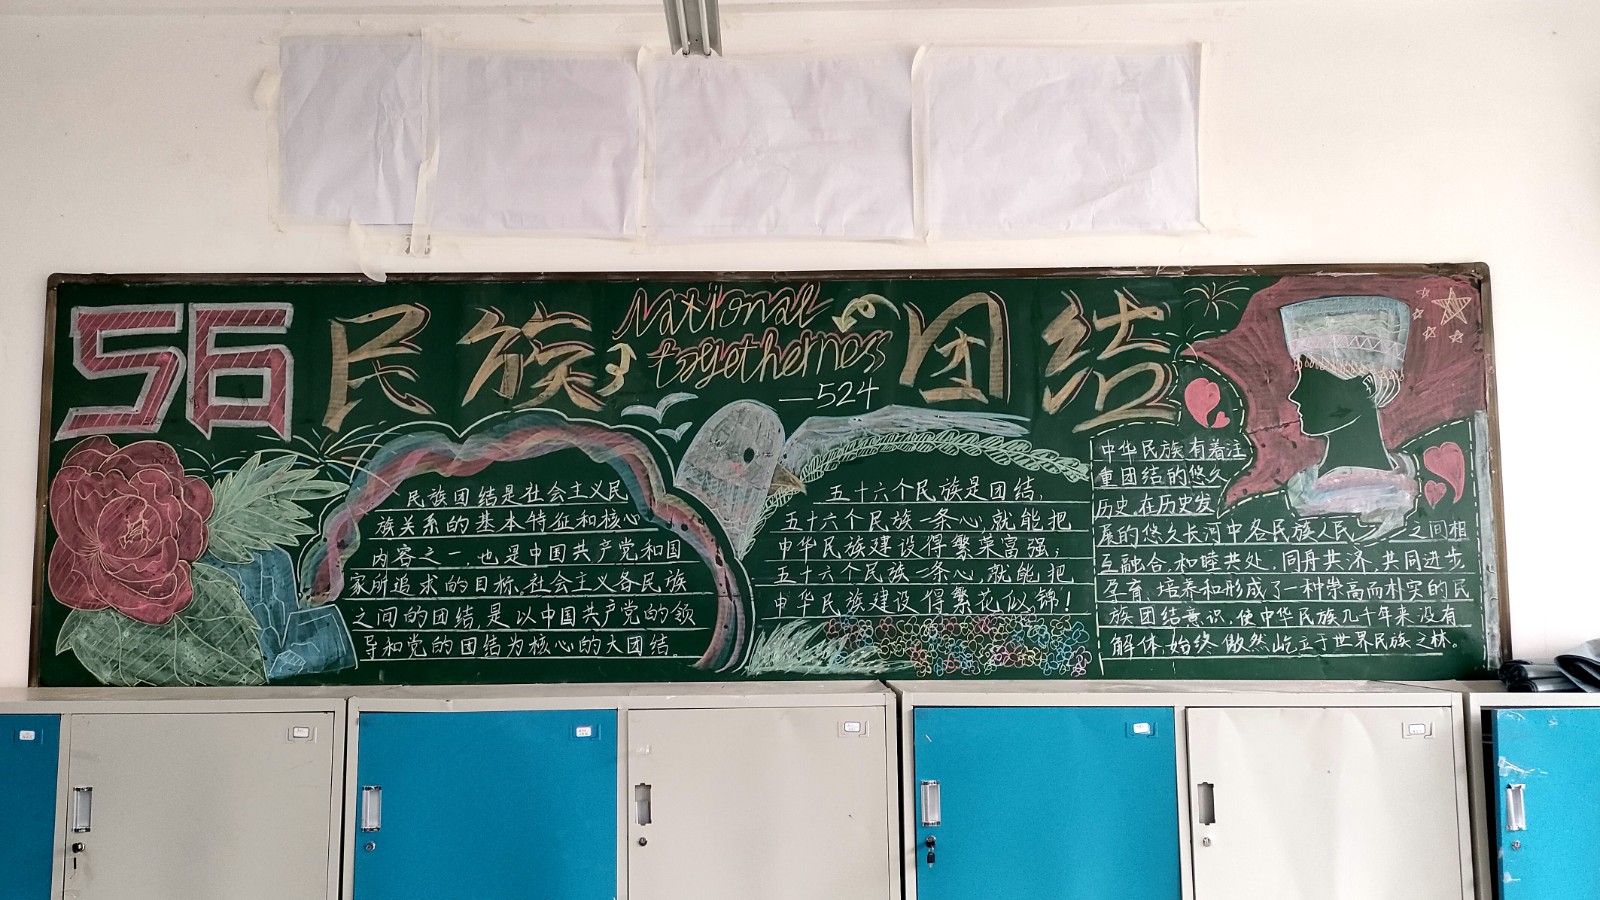 56民族
National
togetherness
团结
—524
民族团结是社会主义民
族关系的基本特征和核心
内容之一,也是中国共产党和国
家所追求的目标。社会主义各民族
之间的团结,是以中国共产党的领
导和党的团结为核心的大团结。
五十六个民族是团结,
五十六个民族一条心,就能把
中华民族建设得繁荣富强;
五十六个民族一条心,就能把
中华民族建设得繁花似锦!
中华民族有着注
重团结的悠久
历史,在历史发
展的悠久长河中各民族人民之间相
互融合,和睦共处,同舟共济,共同进步,
孕育、培养和形成了一种崇高而朴实的民
族团结意识,使中华民族几千年来没有
解体,始终傲然屹立于世界民族之林。